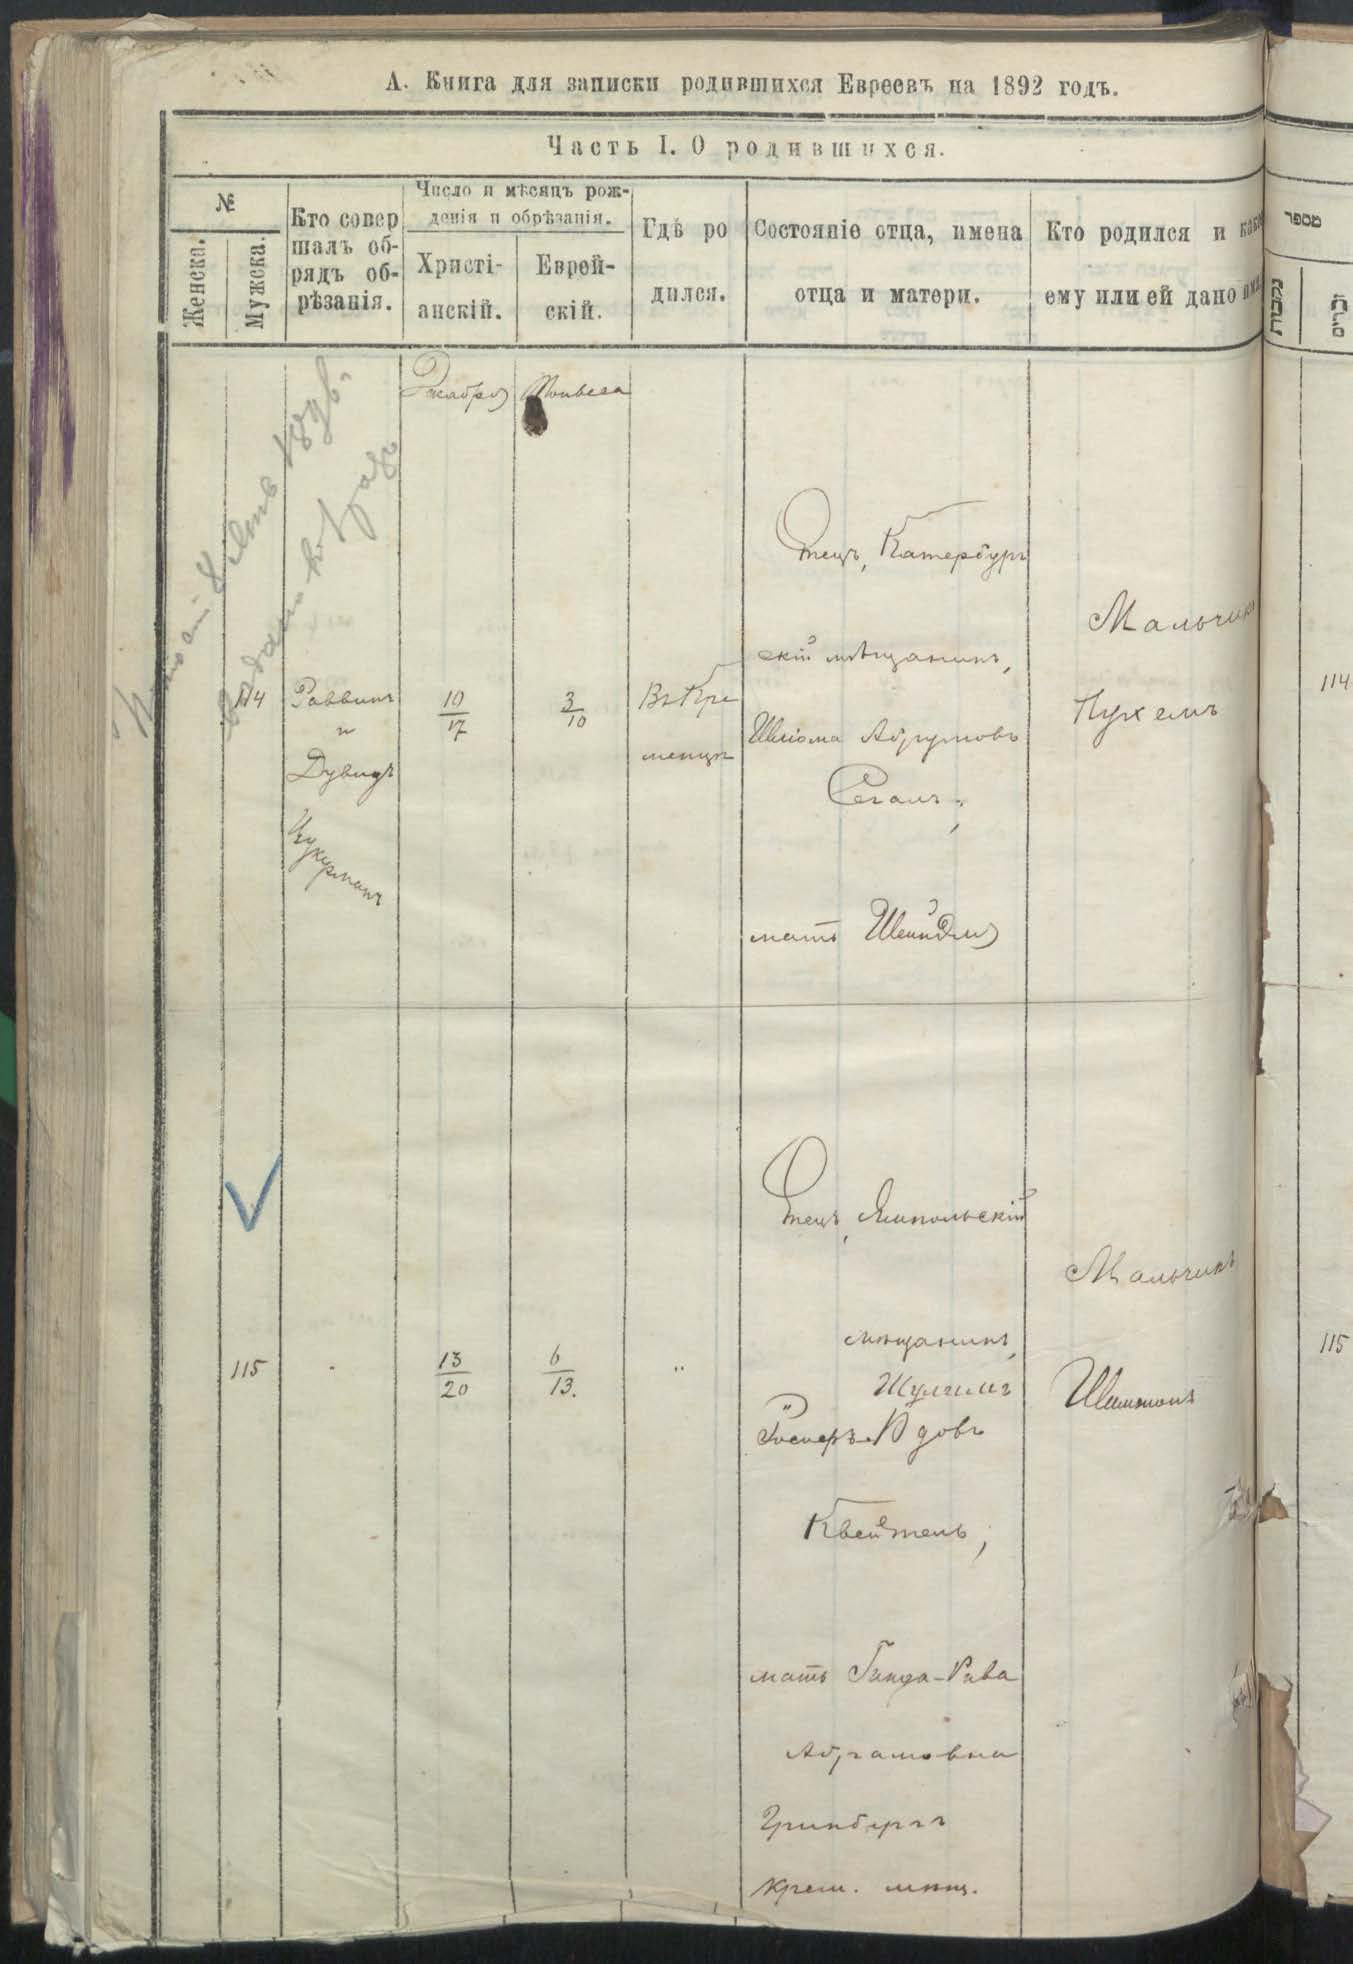 А. Книга для записки родившихся Евреевъ на 1892 годъ.
Часть I. О родившихся.
№
Женска.
Мужска.
Кто совер
шалъ об-
рядъ об-
рѣзанія.
Число и мѣсяцъ рож-
денія и обрѣзанія.
Христі-
анскій.
Еврей-
скій.
Гдѣ ро
дился.
Состояніе отца, имена
отца и матери.
Кто родился и како
ему или ей дано
מספר
נקבות
זכרים
Декабря
114
Раввинъ
и
Дувидъ
Цукерманъ
10
17
3
10
Въ Кре
менцѣ
Отецъ, Катербург
скій мѣщанинъ,
Шлiома Абрумовъ
Сегалъ;
мать Шейндля
Мальчикъ
Нухемъ
114
115
13
20
6
13.
"
Отецъ, Ямпольскій
мѣщанинъ,
Квейтель;
мать Гинда-Рива
Абрамовна
Гринбергъ
крем. мѣщ.
Мальчикъ
Шимшонъ
115